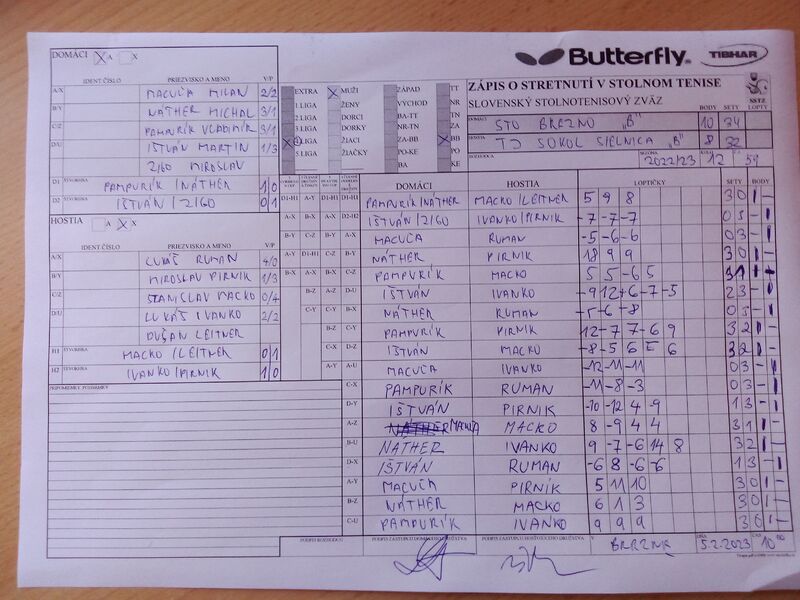 DOMÁCI X A X
Butterfly TIBHAR
IDENT.ČÍSLO PRIEZVISKO A MENO V/P
ZÁPIS O STRETNUTÍ V STOLNOM TENISE
SLOVENSKÝ STOLNOTENISOVÝ ZVÄZ
SSTZ
BODY SETY LOPTY
A/X MACUĽA MILAN 2/2
B/Y NÁTHER MICHAL 3/1
C/Z PAMPURÍK VLADIMÍR 3/1
D/U IŠTVÁN MARTIN 1/3
ZIGO MIROSLAV
D1 ŠTVORHRA PAMPURÍK / NÁTHER 1/0
D2 ŠTVORHRA IŠTVÁN / ZIGO 0/1
EXTRA X MUŽI ZÁPAD TT
1 LIGA ŽENY VÝCHOD NR
2 LIGA DORCI BA-TT TN
3 LIGA DORKY NR-TN ZA
LIGA ŽIACI ZA-BB BB
5 LIGA ŽIAČKY PO-KE PO
BA KE
DOMÁCI STO BREZNO "B" 10 34
HOSTIA TJ SOKOL SIELNICA "B" 8 32
ROZHODCA SEZÓNA 2022/23 KOLO 12 59
HOSTIA A X X
IDENT.ČÍSLO PRIEZVISKO A MENO V/P
A/X LUKÁŠ RUMAN 4/0
B/Y MIROSLAV PIRNIK 1/3
C/Z STANISLAV MACKO 0/4
D/U LUKÁŠ IVANKO 2/2
DUŠAN LEITNER
H1 ŠTVORHRA MACKO / LEITNER 0/1
H2 ŠTVORHRA IVANKO / PIRNIK 1/0
PRIPOMIENKY, PODPISY
DOMÁCI HOSTIA LOPTIČKY SETY BODY
D1-H1 PAMPURÍK / NÁTHER MACKO / LEITNER 5 9 8 3 0 1 -
D2-H2 IŠTVÁN / ZIGO IVANKO / PIRNIK -7 -7 -7 0 3 - 1
MACUĽA RUMAN -5 -6 -6 0 3 - 1
NÁTHER PIRNIK 18 9 9 3 0 1 -
PAMPURÍK MACKO 5 5 -6 5 3 1 1 -
D-U IŠTVÁN IVANKO -9 12 -6 -7 -5 2 3 - 1
B-X NÁTHER RUMAN -5 -6 -8 0 3 - 1
C-Y PAMPURÍK PIRNIK 12 -7 7 -6 9 3 2 1 -
IŠTVÁN MACKO 3 2 1 -
A-U MACUĽA IVANKO -12 -11 -11 0 3 - 1
C-X PAMPURÍK RUMAN -11 -8 -3 0 3 - 1
D-Y IŠTVÁN PIRNIK -10 -12 4 -9 1 3 - 1
A-Z MACUĽA MACKO 8 -9 4 4 3 1 1 -
B-U NÁTHER IVANKO 9 -7 -6 14 8 3 2 1 -
D-X IŠTVÁN RUMAN -6 8 -6 -6 1 3 - 1
A-Y MACUĽA PIRNIK 5 11 10 3 0 1 -
B-Z NÁTHER MACKO 6 1 3 3 0 1 -
C-U PAMPURÍK IVANKO 9 9 9 3 0 1 -
PODPIS ROZHODCU PODPIS ZÁSTUPCU DOMÁCEHO DRUŽSTVA PODPIS ZÁSTUPCU HOSŤUJÚCEHO DRUŽSTVA V BREZNE DŇA 5.2.2023 ČAS 10 00